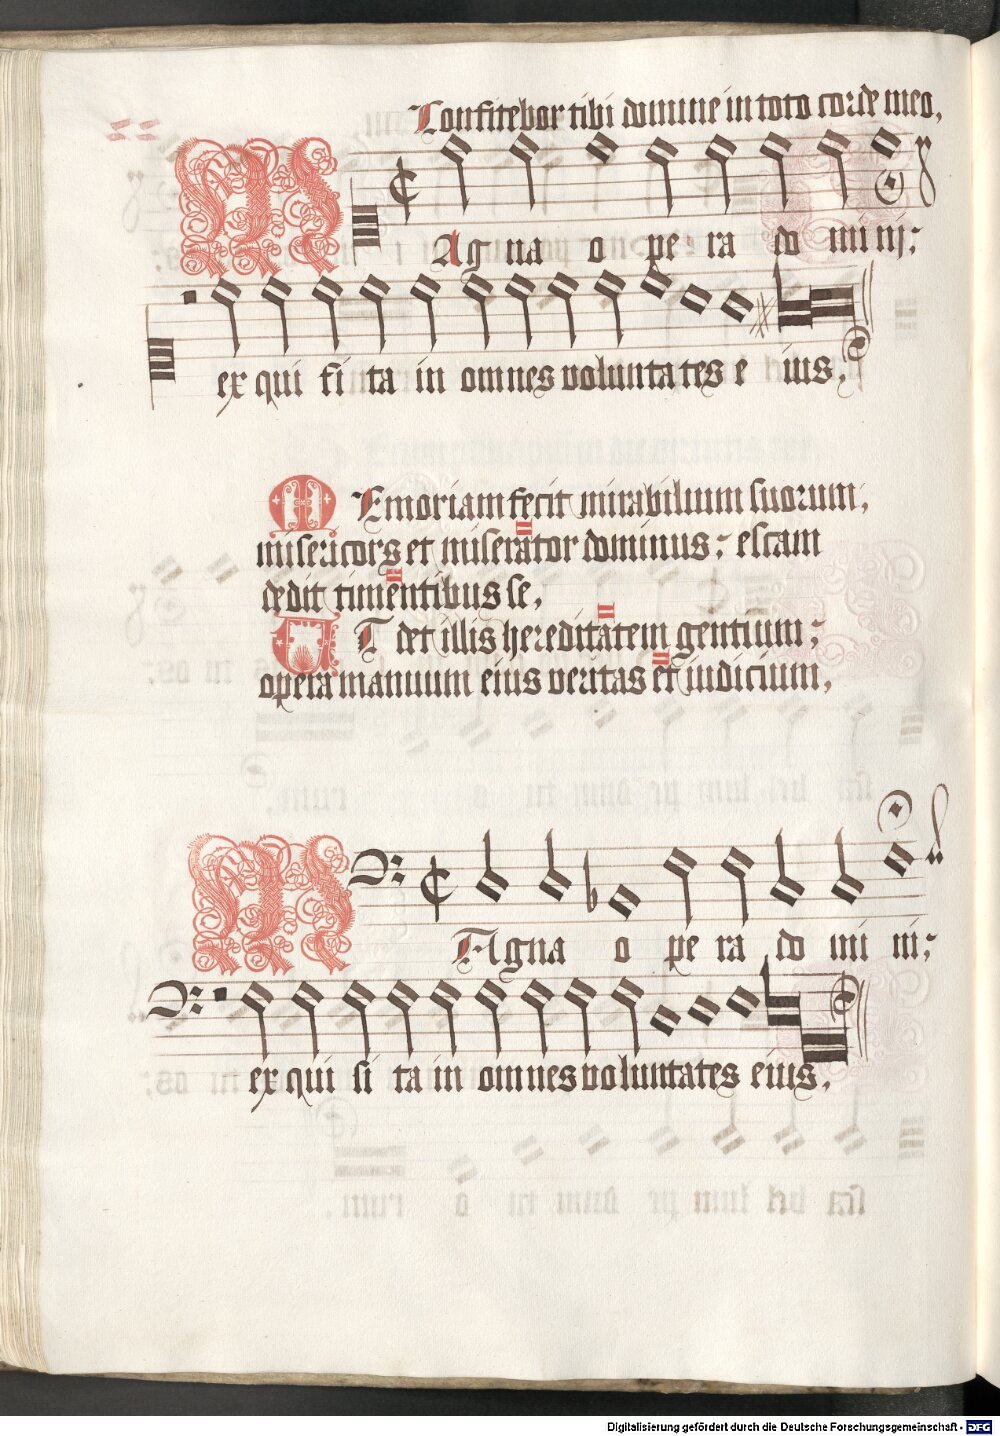 Confitebor tibi domine in toto corde meo,
MAgna opera domini:
exquisita in omnes voluntates eius.
MEmoriam fecit mirabilium suorum,
misericors et miserator dominus: escam
dedit timentibus se,
UT det illis hereditatem gentium:
opera manuum eius veritas et iudicium,
MAgna opera domini:
exquisita in omnes voluntates eius.
Digitalisierung gefördert durch die Deutsche Forschungsgemeinschaft - DFG